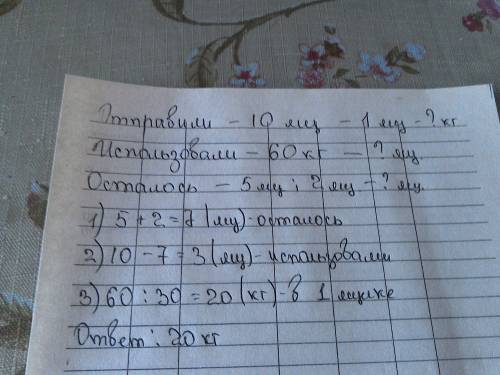 Отправили - 10 ящ - 1 ящ - ? кг
Использовали - 60 кг - ? ящ.
Осталось - 5 ящ и 2 ящ - ? ящ.
1) 5 + 2 = 7 (ящ) - осталось
2) 10 - 7 = 3 (ящ) - использовали
3) 60 : 30 = 20 (кг) - в 1 ящике
Ответ: 20 кг